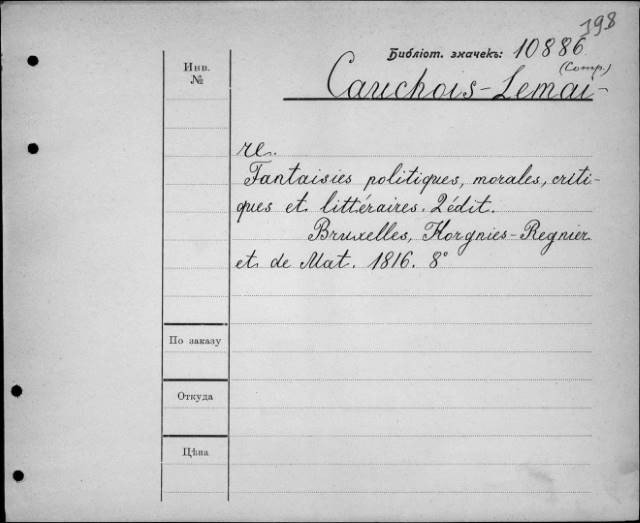 398
Библіот. значекъ: 10886
(Comp.)
Инв.
№
Cauchois-Lemai-
re.
Fantaisies politiques, morales, criti-
ques et littéraires. 2édit.
Bruxelles, Horgnies-Regnier
et de Mat. 1816. 8°
По заказу
Откуда
Цѣна